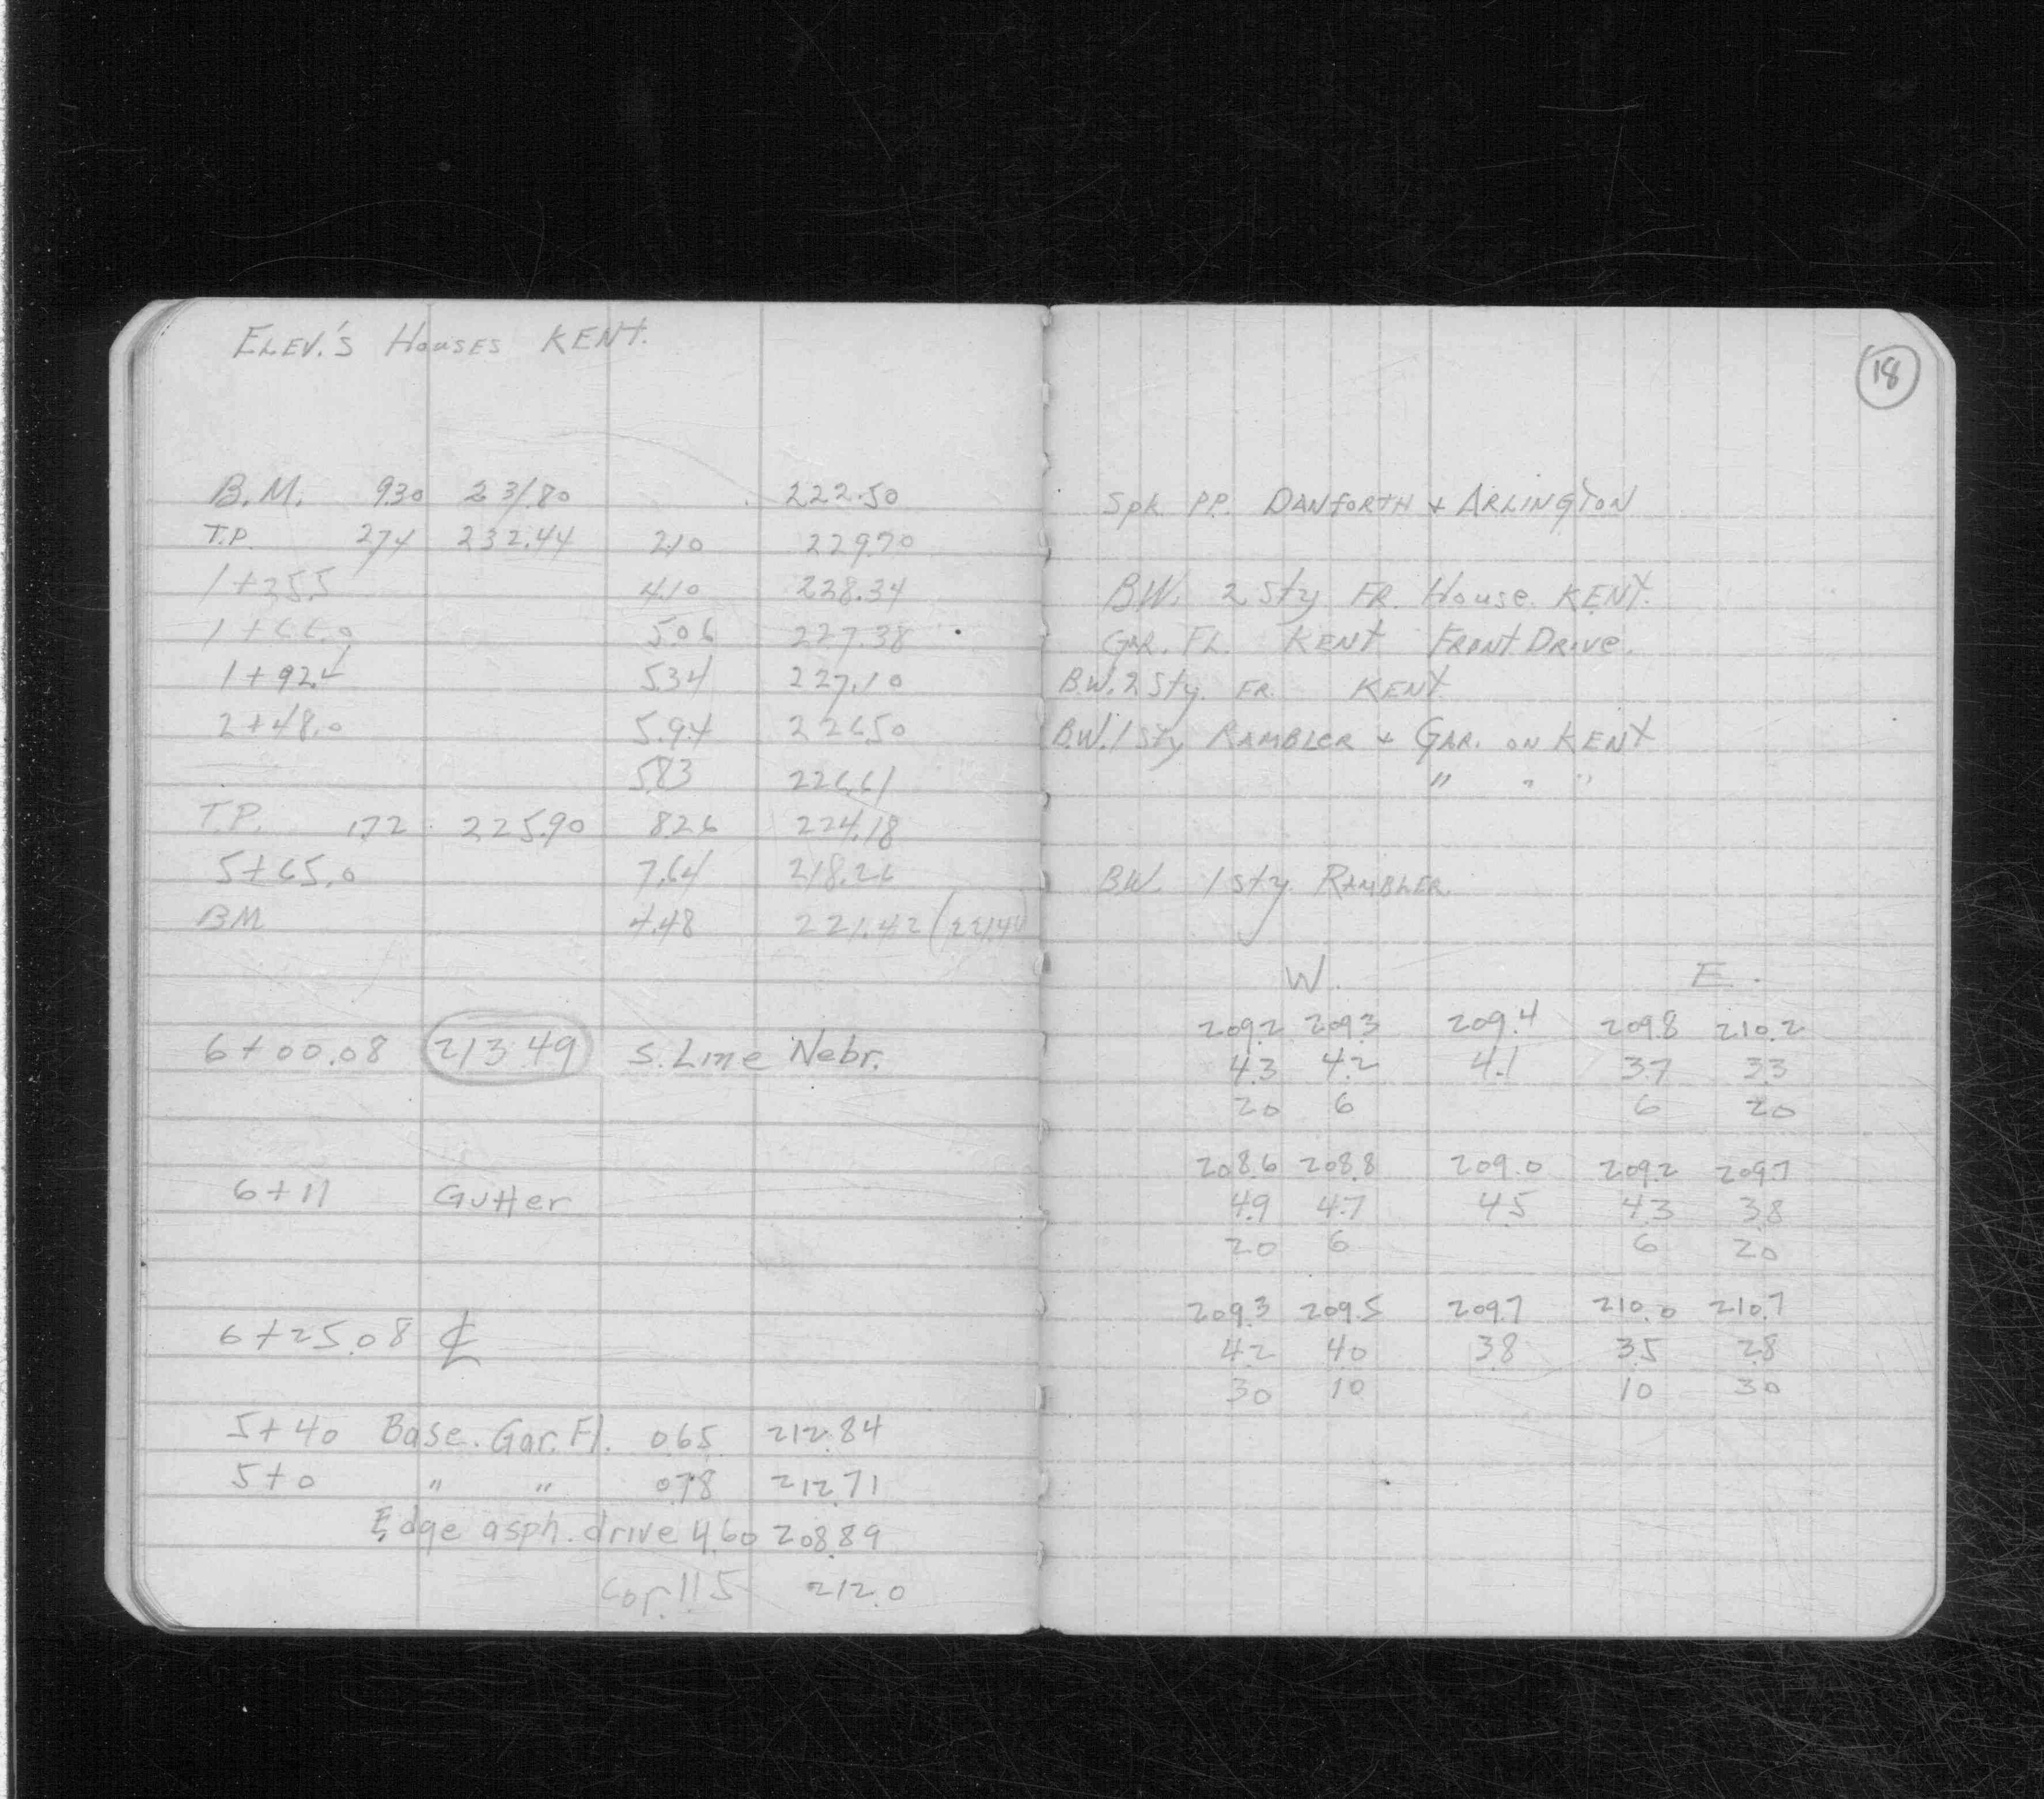 ELEV.'S HOUSES KENT.
B.M. 9.30 231.80 222.50
T.P. 2.74 232.44 2.10 229.70
1+35.5 4.10 228.34
1+66.0 5.06 227.38
1+92.4 5.34 227.10
2+48.0 5.94 226.50
5.83 226.61
T.P. 1.72 225.90 8.26 224.18
5+65.0 7.64 218.26
BM 4.48 221.42 (221.44)
6+00.08 213.49 S. Line Nebr.
6+11 Gutter
6+25.08 ℄
5+40 Base. Gar. Fl. 0.65 212.84
5+0 " " 0.78 212.71
Edge asph. drive 4.60 208.89
Cor. 11.5 212.0
18
Spk. PP. DANFORTH + ARLINGTON
B.W. 2 Sty FR. House. KENT.
GAR. FL. KENT FRONT DRIVE.
B.W. 2 Sty. FR. KENT
B.W. 1 Sty RAMBLER + GAR. ON KENT
" " "
B.W. 1 sty. RAMBLER
W. E.
209.2 209.3 209.4 209.8 210.2
4.3 4.2 4.1 3.7 3.3
20 6 6 20
208.6 208.8 209.0 209.2 209.7
4.9 4.7 4.5 4.3 3.8
20 6 6 20
209.3 209.5 209.7 210.0 210.7
4.2 4.0 3.8 3.5 2.8
30 10 10 30